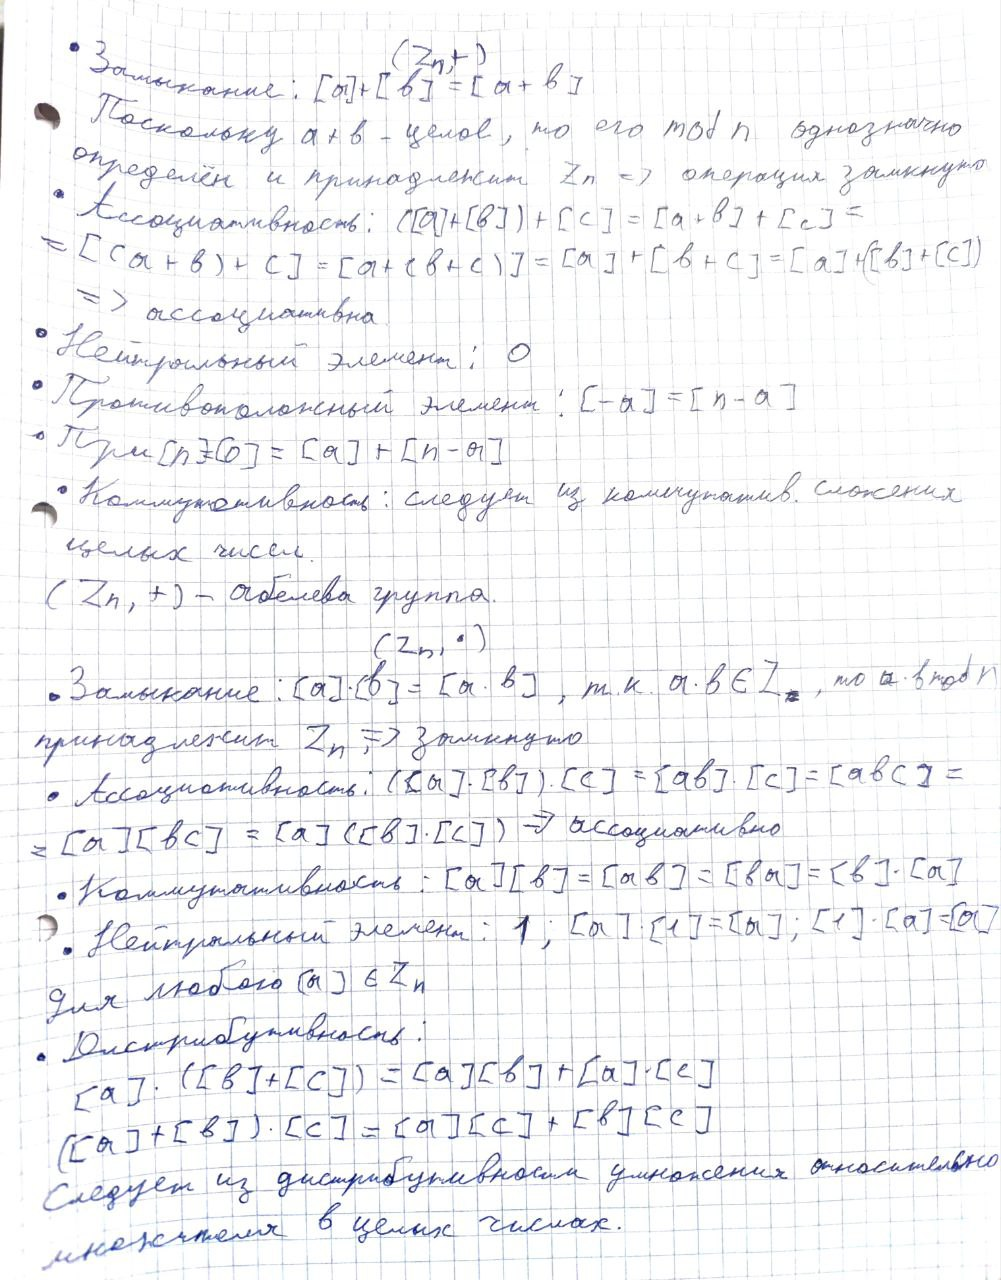 (Zn,+)
• Замыкание: [a]+[b]=[a+b]
Поскольку a+b - целое, то его mod n однозначно
определён и принадлежит Zn => операция замкнута
• Ассоциативность: ([a]+[b])+[c]=[a+b]+[c]=
=[(a+b)+c]=[a+(b+c)]=[a]+[b+c]=[a]+([b]+[c])
=> ассоциативна
• Нейтральный элемент: 0
• Противоположный элемент: [-a]=[n-a]
• При [n]=[0]=[a]+[n-a]
• Коммутативность: следует из коммутатив. сложения
целых чисел.
(Zn, +) - абелева группа.
(Zn, ·)
• Замыкание: [a]·[b]=[a·b], т.к. a·b∈Z, то a·b mod n
принадлежит Zn, => замкнуто
• Ассоциативность: ([a]·[b])·[c]=[ab]·[c]=[abc]=
=[a][bc]=[a]([b]·[c]) => ассоциативно
• Коммутативность: [a][b]=[ab]=[ba]=[b]·[a]
• Нейтральный элемент: 1; [a]·[1]=[a]; [1]·[a]=[a]
для любого [a]∈Zn
• Дистрибутивность:
[a]·([b]+[c])=[a][b]+[a]·[c]
([a]+[b])·[c]=[a][c]+[b][c]
Следует из дистрибутивности умножения относительно
множителя в целых числах.